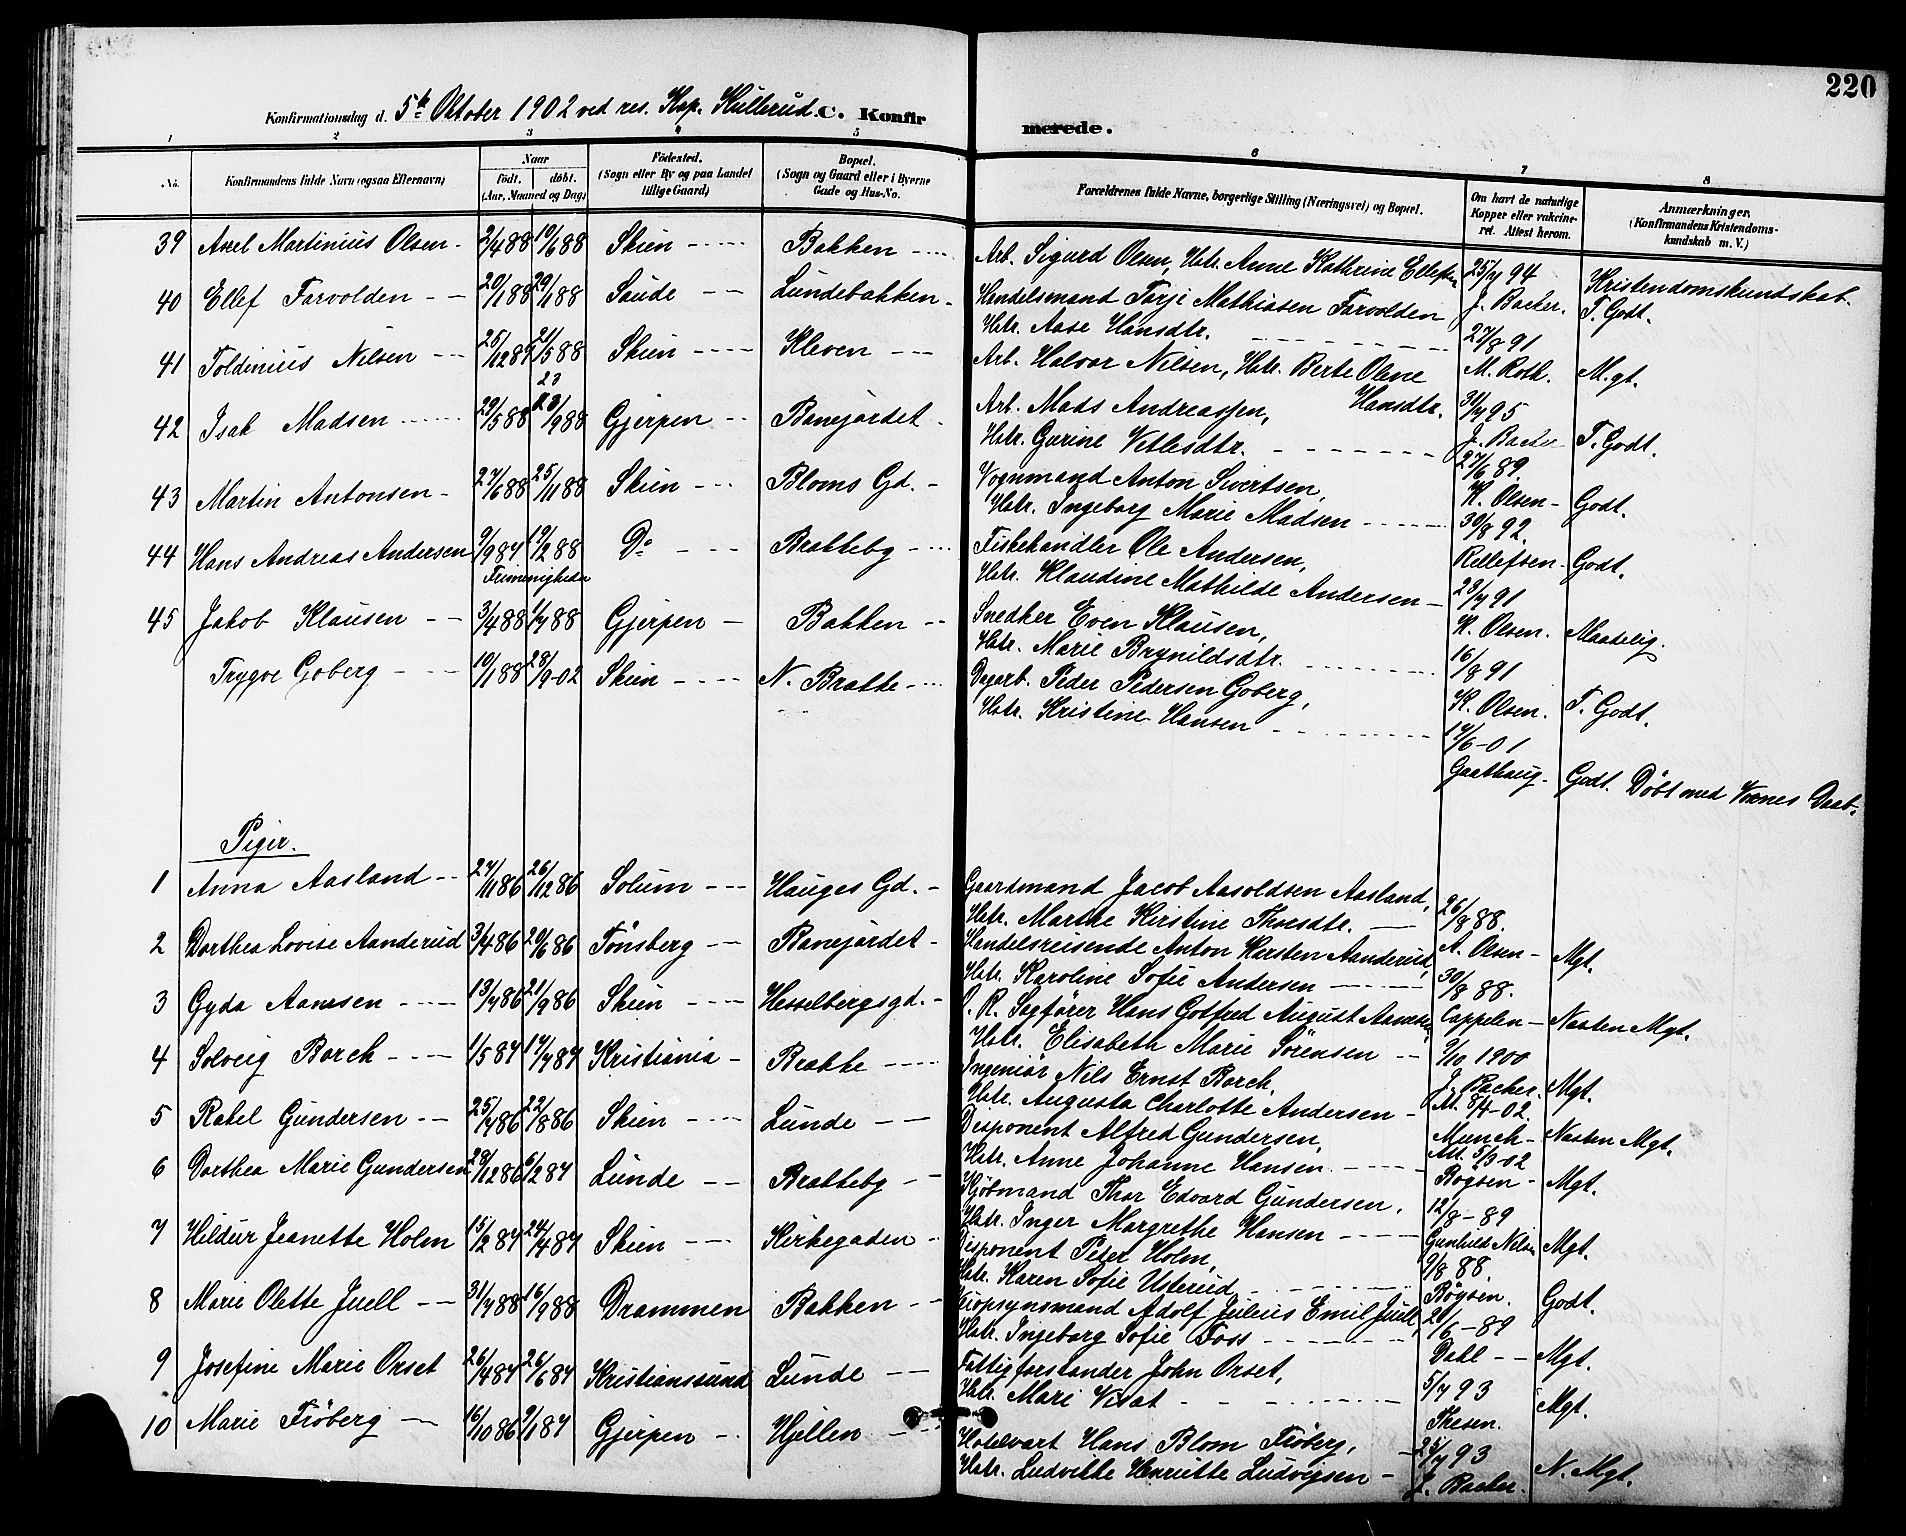 220
Konfirmationsdag d. 5te Oktober 1902 ved res. Kap. Hullerud. C. Konfirmerede.
1 2 3 4 5 6 7 8
No. Konfirmandens fulde Navn (ogsaa Efternavn) Naar født. døbt. (Aar, Maaned og Dag) Fødested. (Sogn eller By og paa Landet tillige Gaard) Bopæl. (Sogn og Gaard eller i Byerne Gade og Hus-No. Forældrenes fulde Navne, borgerlige Stilling (Næringsvei) og Bopæl. Om havt de naturlige Kopper eller vakcineret. Attest herom. Anmærkninger. (Konfirmandens Kristendomskundskab m. V.)
39 Axel Martinius Olsen 2/4 88 10/6 88 Skien Bakken Arb. Sigurd Olsen, Hstr. Anne Kathrine Ellefsen 25/7 94 J. Backer. Kristendomskundskab T. Godt.
40 Ellef Farvolden 20/1 88 29/1 88 Saude Lundebakken Handelsmand Tarje Mathiasen Farvolden
Hstr. Aase Hansdtr. 27/8 91 M. Roth. M.gt.
41 Toldinius Nilsen 25/12 87 21/5 88 Skien Kleven Arb. Halvor Nilsen, Hstr. Berte Olene
Hansdtr. 31/7 95 J. Backer T. Godt.
42 Isak Madsen 29/5 88 23/9 88 Gjerpen Banejordet Arb. Mads Andreassen,
Hstr. Gurine Vetlesdtr. 27/6 89. K. Olsen Godt.
43 Martin Antonsen 27/6 88 25/11 88 Skien Bloms Gd. Vognmand Anton Sivertsen,
Hstr. Ingeborg Marie Madsen 30/8 92. Rellefsen Godt.
44 Hans Andreas Andersen 9/9 87 19/2 88 Do Bratteby Fiskehandler Ole Andersen,
Frimenigheden
Hstr. Klaudine Mathilde Andersen 23/7 91 K. Olsen. Maadelig.
45 Jakob Klausen 3/4 88 1/7 88 Gjerpen Bakken Snedker Even Klausen,
Hstr. Marie Brynildsdtr. 16/8 91 K. Olsen. T. Godt.
Trygve Goberg 10/1 88 28/9-02 Skien N. Bratte Dagarb. Peder Pedersen Goberg,
Hstr. Kristine Hansen 17/6-01 Gaathaug. Godt. Døbt med Voxnes Daab.
Piger.
1 Anna Aasland 27/11 86 26/12 86 Solum Hauges Gd. Gaardmand Jacob Aasoldsen Aasland,
Hstr. Marthe Kirstine Thoesdtr. 26/8 88. A. Olsen Mgt.
2 Dorthea Lovise Aanderud 3/4 86 20/6 86 Tønsberg Banejordet Handelsreisende Anton Karsten Aanderud,
Hstr. Karoline Sofie Andersen 30/8 88. Cappelen Næsten Mgt.
3 Gyda Aamsen 13/7 86 21/9 86 Skien Hesselbergsgd. O. R. Sagfører Hans Gotfred August Aamsen
Hstr. Elisabeth Marie Sørensen 9/10 1900 J. Backer. Mgt.
4 Solveig Borch 1/5 87 17/7 87 Kristiania Bratte Ingeniør Nils Ernst Borch,
Hstr. Augusta Charlotte Andersen At. 8/4-02 Munch Næsten Mgt.
5 Rakel Gundersen 25/7 86 22/8 86 Skien Lunde Disponent Alfred Gundersen,
Hstr. Anne Johanne Hansen Att. 5/3-02 Bøgsen Mgt.
6 Dorthea Marie Gundersen 28/12 86 6/2 87 Lunde Bratteby Kjøbmand Thor Edvard Gundersen,
Hstr. Inger Margrethe Hansen 12/8-89 Gunhild Nilsen Mgt.
7 Hildur Jeanette Holm 15/2 87 24/4 87 Skien Kirkegaden Disponent Peter Holm,
Hstr. Karen Sofie Usterud 9/8 88. Bøgsen. Godt.
8 Marie Olette Juell 31/7 88 16/9 88 Drammen Bakken Veiopsynsmand Adolf Julius Emil Juell,
Hstr. Ingeborg Sofie Foss 21/6-89 Dahl Mgt.
9 Josefine Marie Orset 26/4 87 26/6 87 Kristianssund Lunde Fattigforstander John Orset,
Hstr. Mari Visat 5/7 93 Thesen. Mgt.
10 Marie Frøberg 16/10 86 9/1 87 Gjerpen Hjellen Hotelvært Hans Blom Frøberg,
Hstr. Ludvikke Henriette Ludvigsen 25/7 93 J. Backer. N. Mgt.